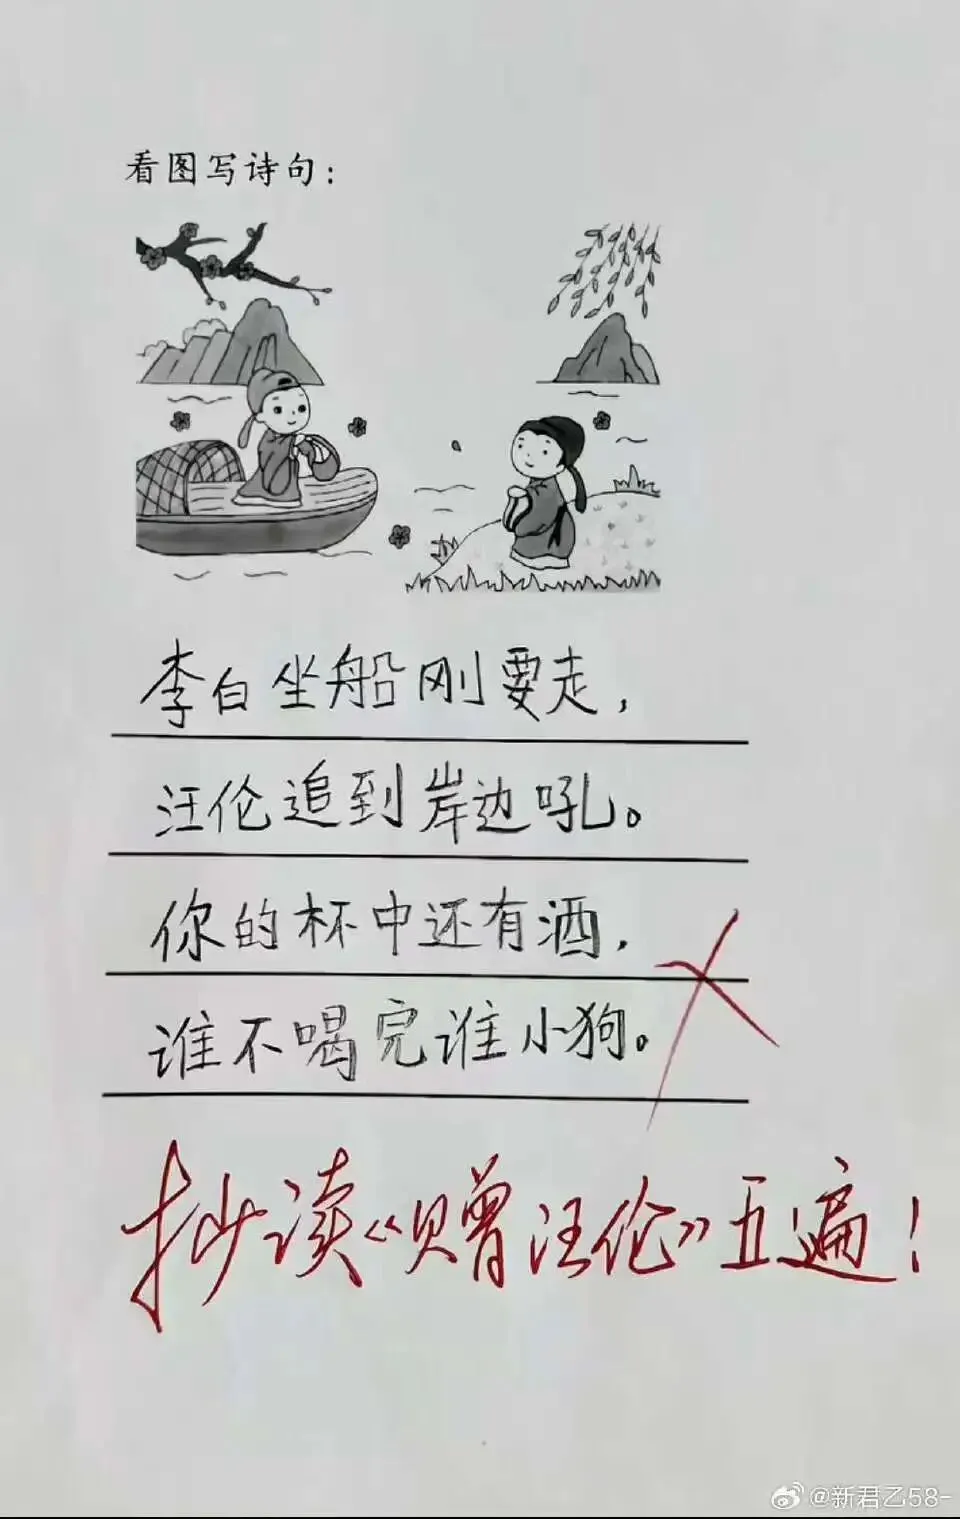 看图写诗句：
李白坐船刚要走，
汪伦追到岸边吼。
你的杯中还有酒，
谁不喝完谁小狗。
抄读《赠汪伦》五遍！
@新君乙58-